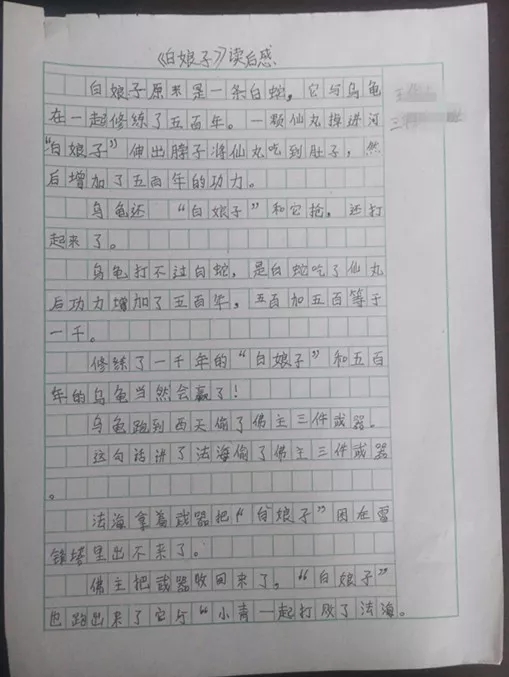 《白娘子》读后感
白娘子原来是一条白蛇，它与乌龟
在一起修练了五百年。一颗仙丸掉进河
“白娘子”伸出脖子将仙丸吃到肚子，然
后增加了五百年的功力。
乌龟还 “白娘子”和它抢，还打
起来了。
乌龟打不过白蛇，是白蛇吃了仙丸
后功力增加了五百年，五百加五百等于
一千。
修练了一千年的“白娘子”和五百
年的乌龟当然会赢了！
乌龟跑到西天偷了佛主三件或器。
这句话讲了法海偷了佛主三件或器
。
法海拿着或器把“白娘子”困在雷
锋塔里出不来了。
佛主把或器收回来了，“白娘子”
也跑出来了它与“小青一起打败了法海。